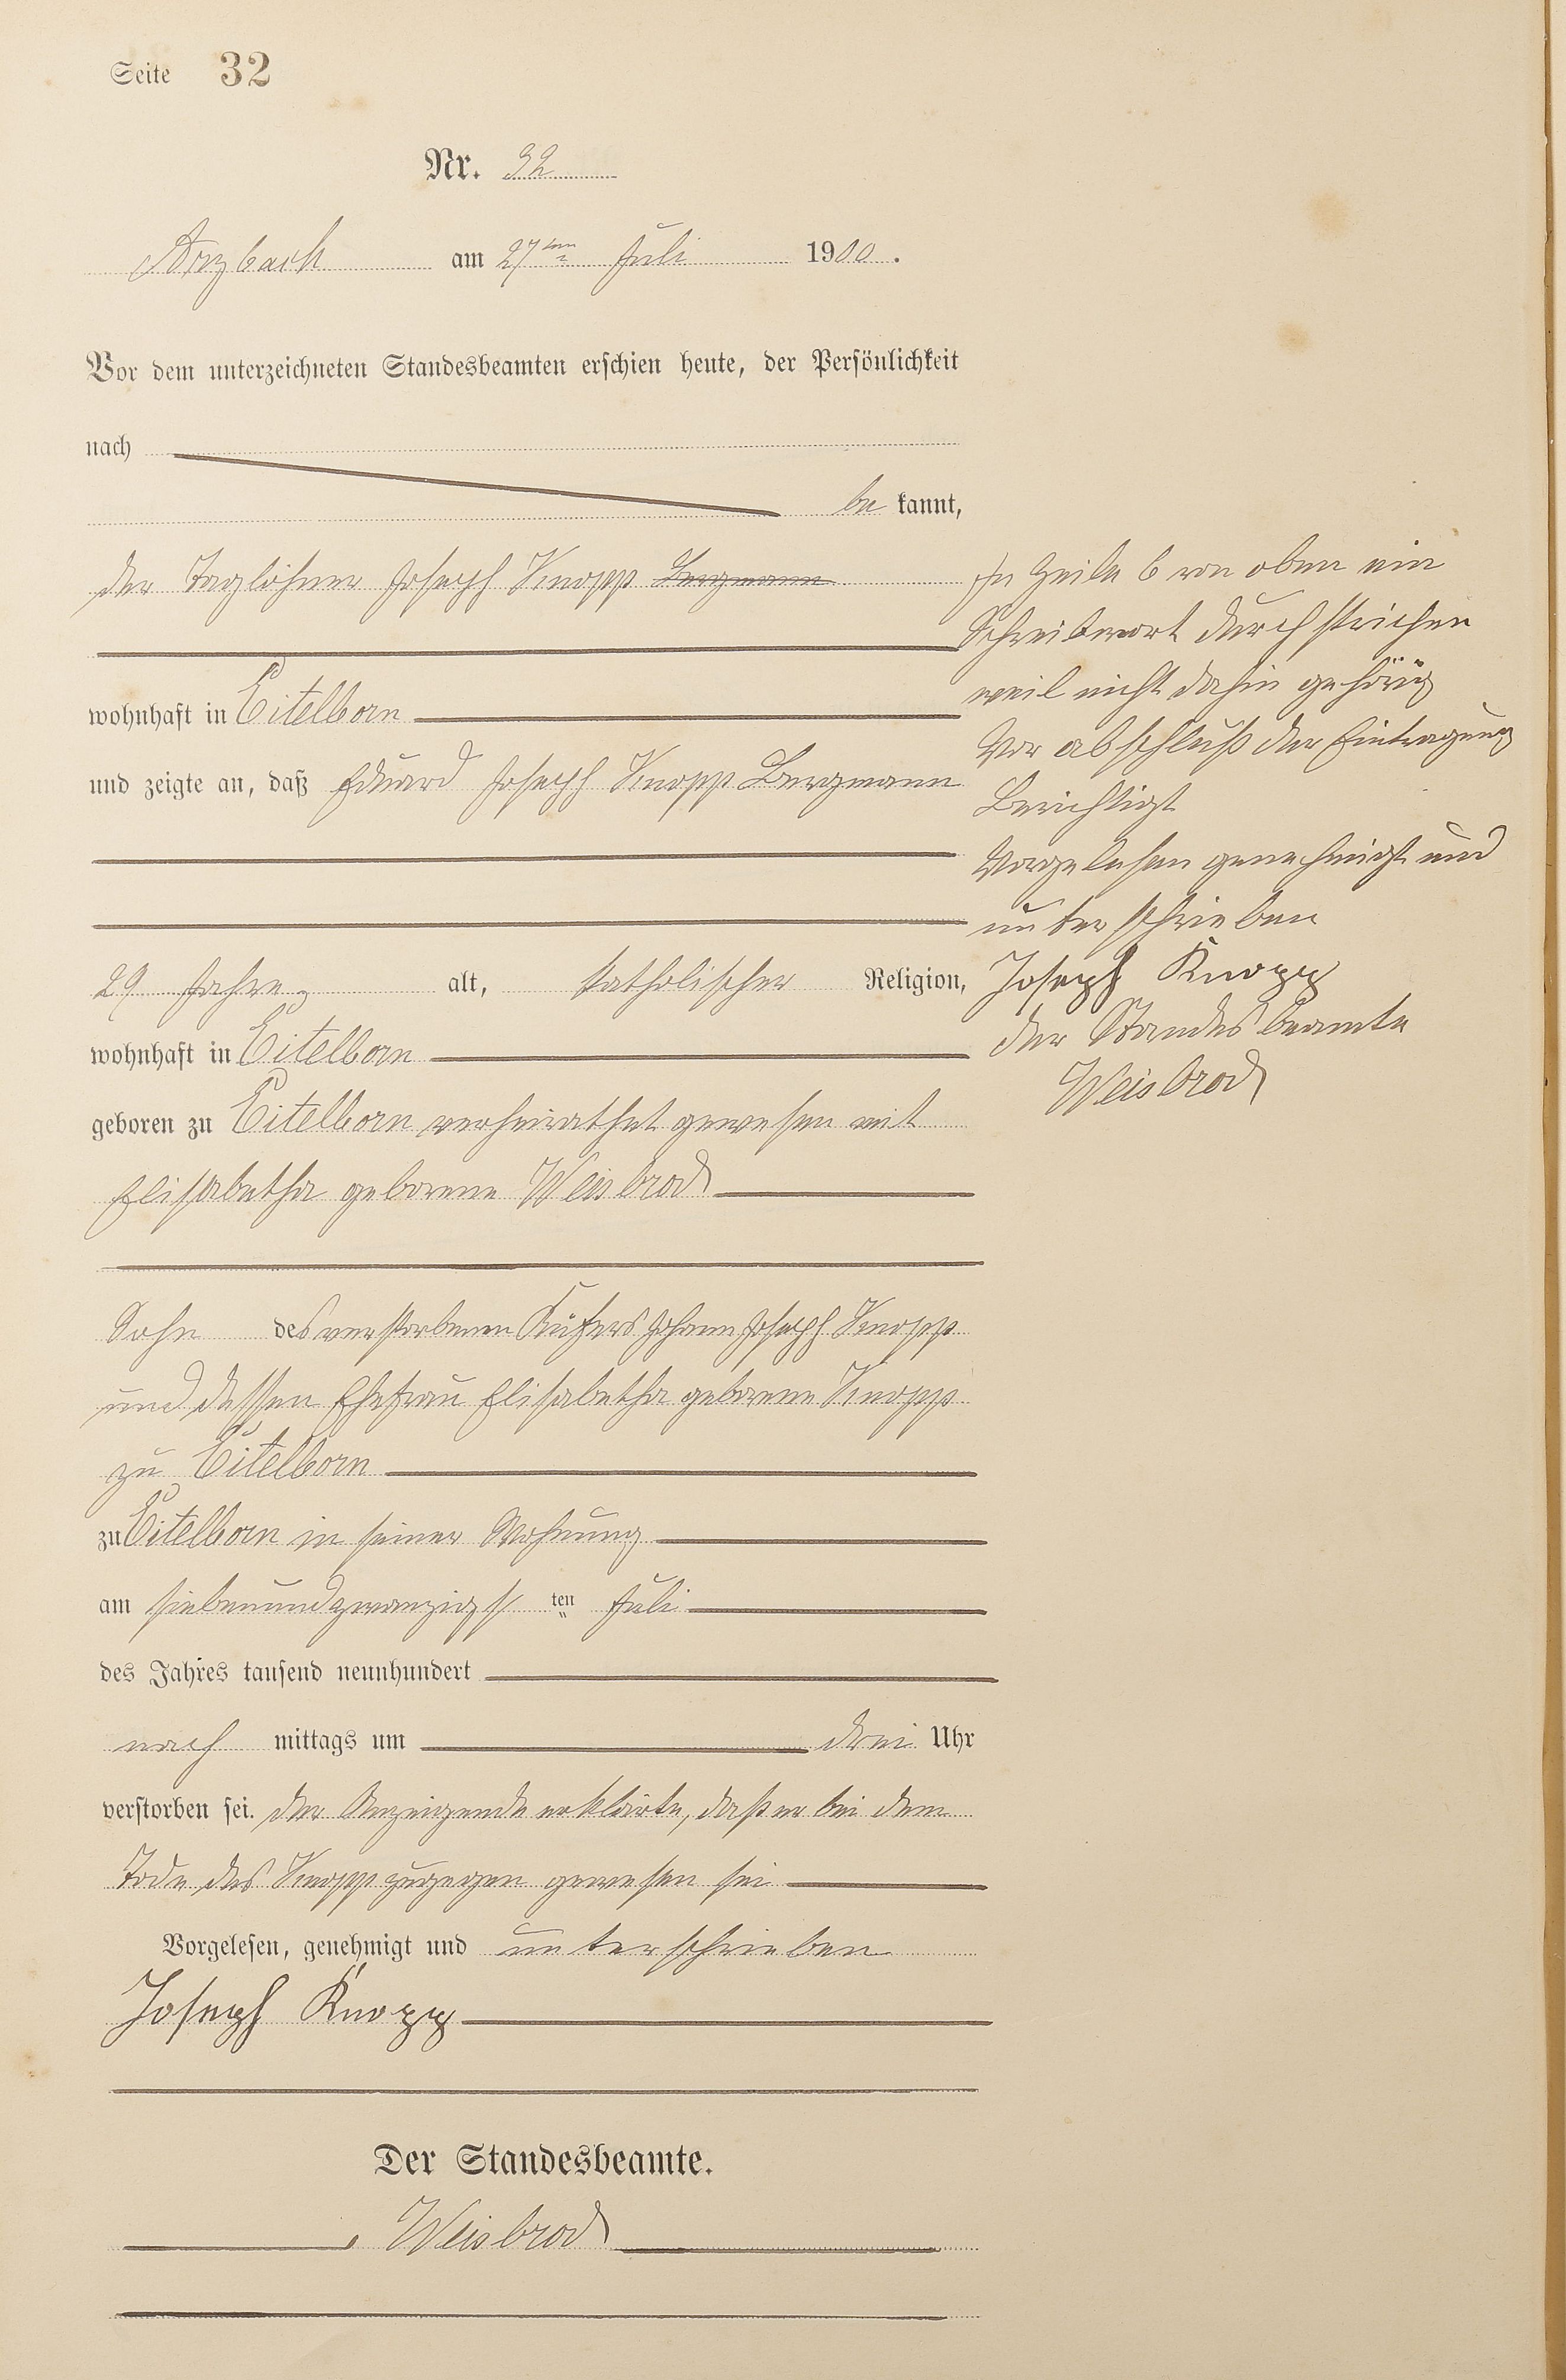 Seite 32
Nr. 32
Arzbach am 27ten Juli 1900.
Vor dem unterzeichneten Standesbeamten erschien heute, der Persönlichkeit
nach
be kannt,
der Taglöhner Joseph Knopp Bergmann
wohnhaft in Eitelborn
und zeigte an, daß Eduard Joseph Knopp Bergmann
29 Jahre alt, katholischer Religion,
wohnhaft in Eitelborn
geboren zu Eitelborn verheirathet gewesen mit
Elisabetha geborene Weisbrod
Sohn des verstorbenen Küfers Johann Joseph Knopp
und dessen Ehefrau Elisabetha geborene Knopp
zu Eitelborn
zu Eitelborn in seiner Wohnung
am siebenundzwanzigs ten Juli
des Jahres tausend neunhundert
nach mittags um drei Uhr
verstorben sei. Der Anzeigende erklärte, daß er bei dem
Tode des Knopp zugegen gewesen sei
Vorgelesen, genehmigt und unterschrieben
Joseph Knopp
Der Standesbeamte.
Weisbrod
In Zeile 6 von oben ein
Schreibwort durchstrichen
weil nicht dahin gehörig
Vor abschluß der Eintragung
Berichtigt
Vorgelesen genehmigt und
unterschrieben
Joseph Knopp
der Standesbeamte
Weisbrod